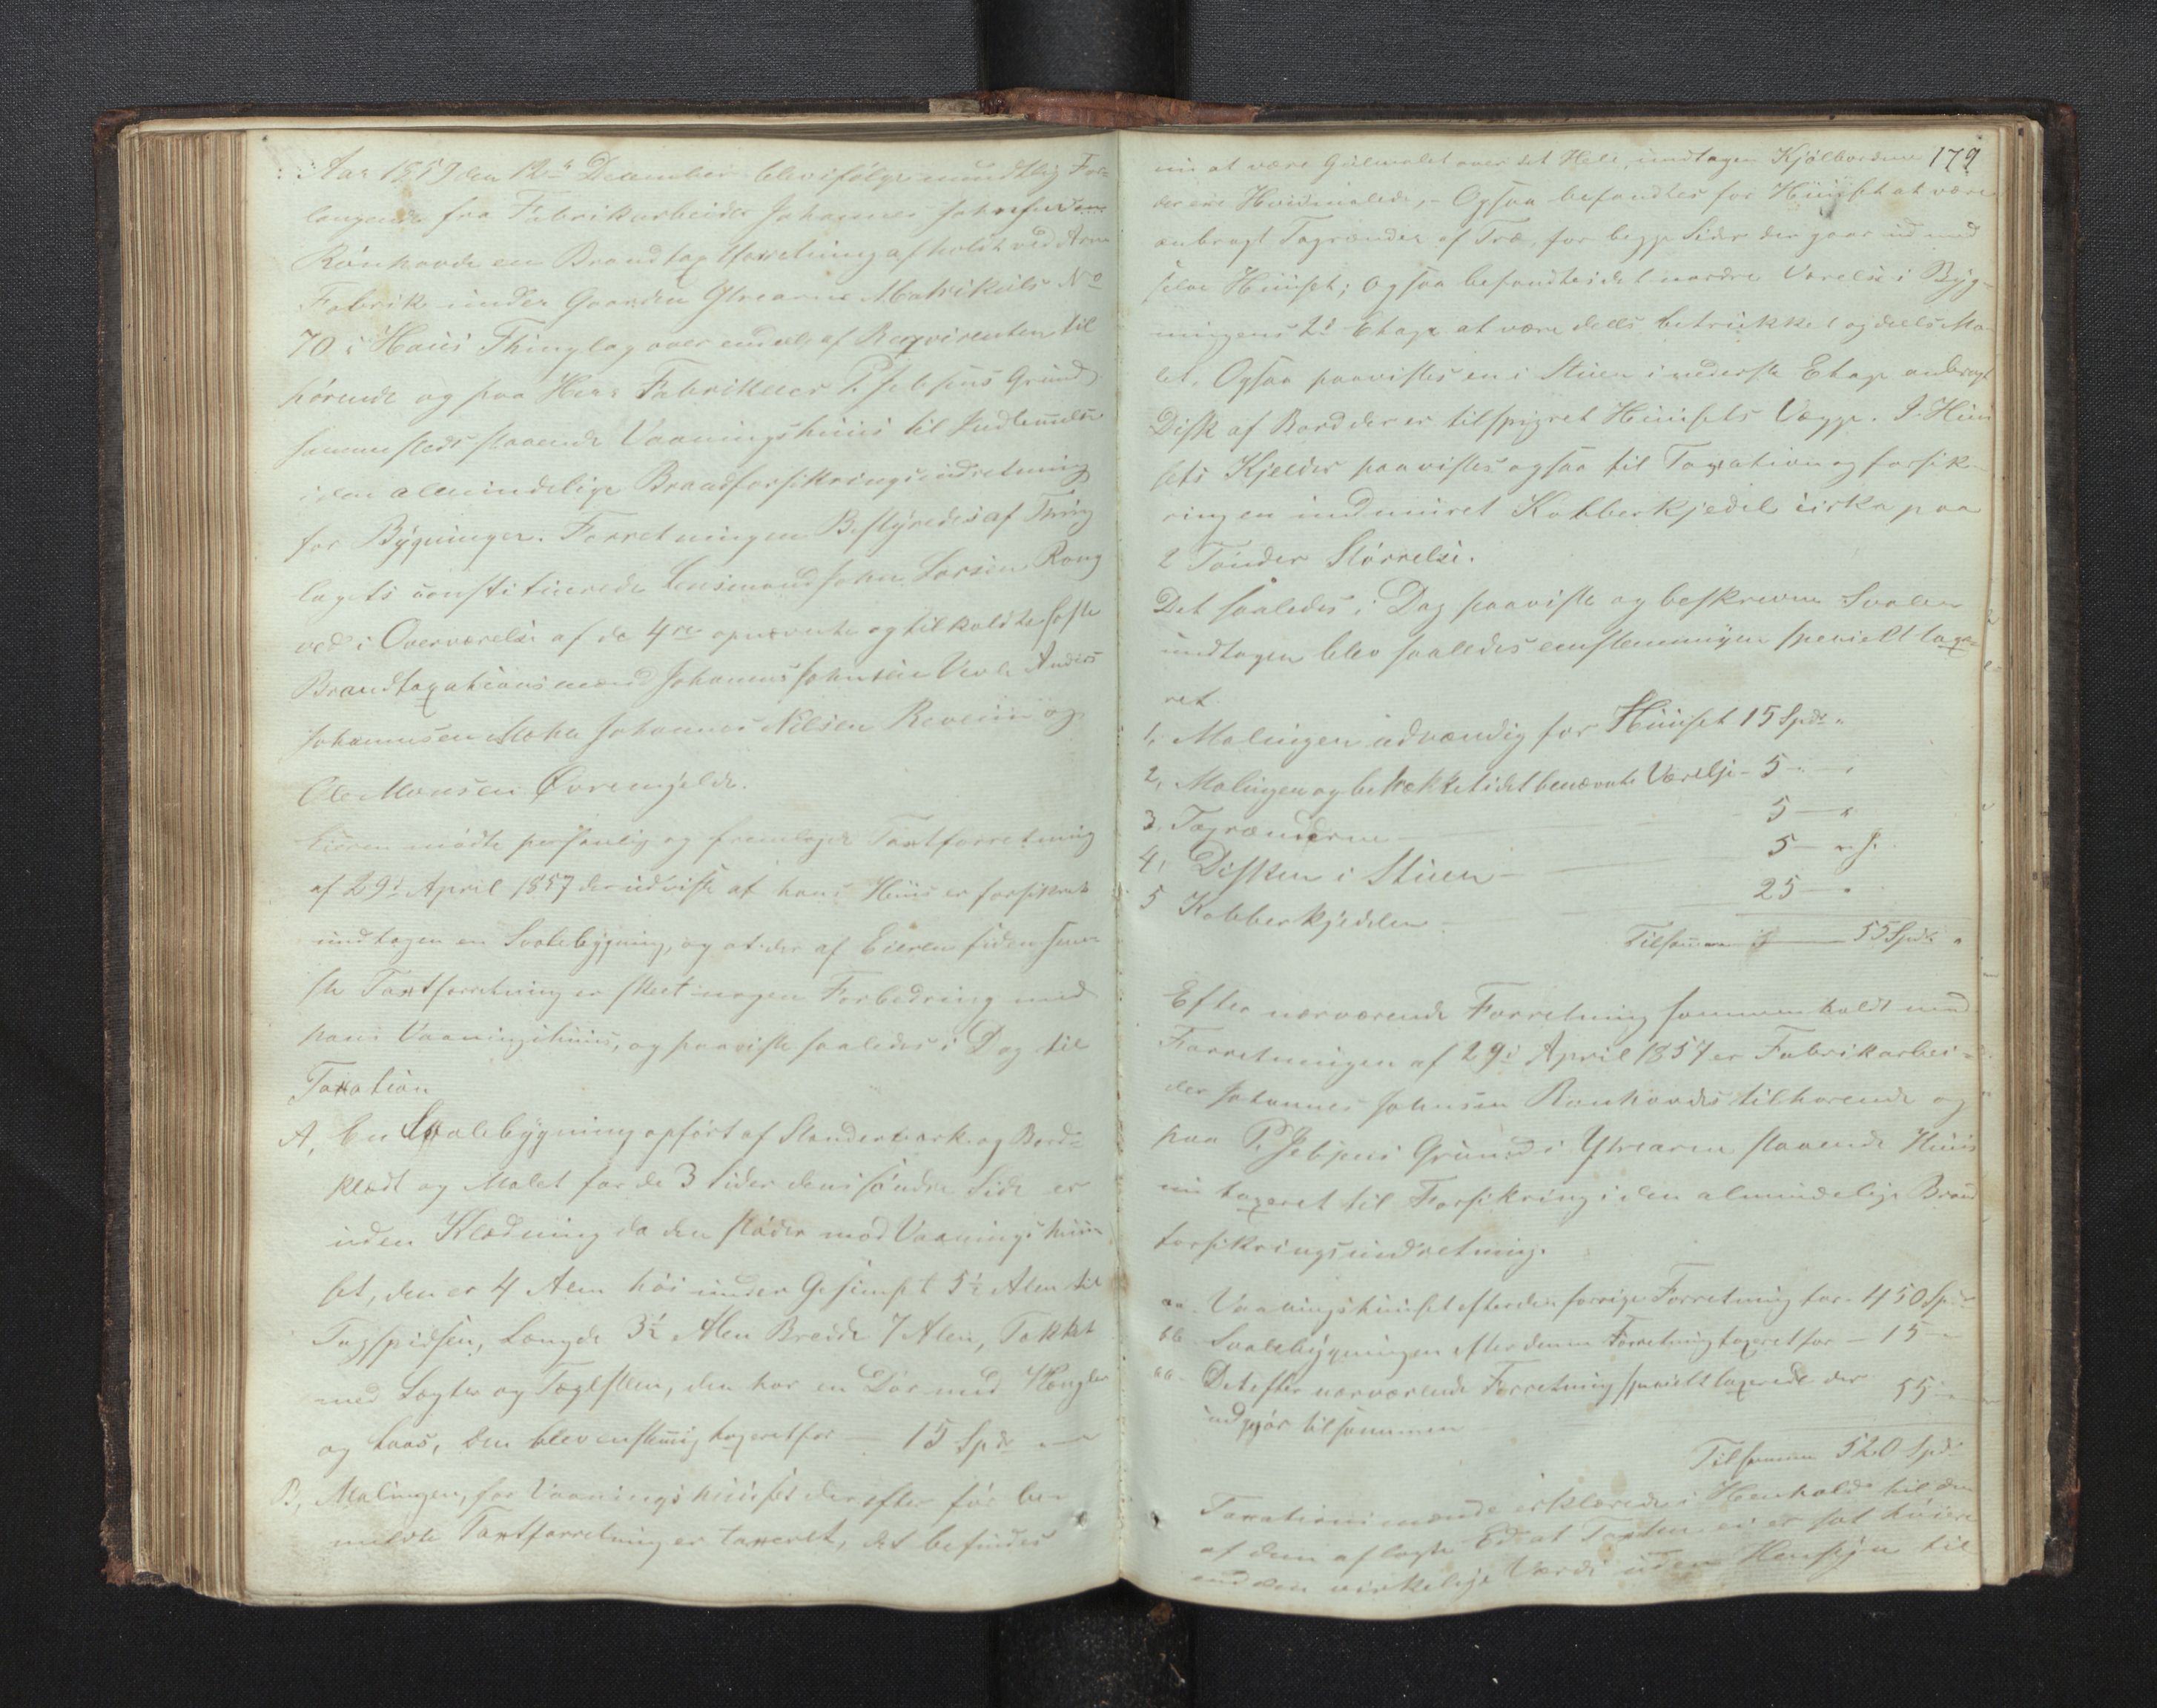 Aar 1859 den 12te December blev ifølge mundtlig For-
langende fra Fabrikarbeider Johannes Johnsen
Rönhovde en Brandtaxtforretning afholdt ved Arne
Fabrik under Gaarden Ytrearne Matrikuls No
70 i Haus Thinglag over endeel af Reqvirenten til
hörende og paa Herr Fabrikeier P. Jebsens Grund
sammesteds staaende Vaaningshuus til Indlemmelse
i den almindelige Brandforsikringsindretning
for Bygninger. Forretningen Bestyredes af Thing
lagets constituerede Lensmand John Larsen Rong
ved i Overværelse af de 4re opnævnte og tilkaldte faste
Brandtaxationsmænd Johannes Johnsen Anders
Johannesen Johannes Nilsen Revem og
Ole Monsen Övremjelde.
Eieren mödte personlig og fremlagde Taxtforretning
af 29de April 1857 der udviste at hans Huus er forsikret
undtagen en Svalebygning, og at der af Eieren siden sene-
ste Taxtforretning er skeet nogen Forbedring med
hans Vaaningshuus, og paaviste saaledes i Dag til
Taxation
A, En Svalebygning opfört af Standerværk og Bord-
klædt og Malet for de 3 Sider dens söndre Side er
uden Klædning da den stöder mod Vaaningshuu-
set, den er 4 Alen höi under Gesimset 5½ Alen til
Tagspidsen, Længde 3½ Alen Bredde 7 Alen, Takket
med Lægter og Taglsteen, den har en Dör med Hængsler
og Laas, den blev enstemmig taxeret for — 15 Spd
B, Malingen, for Vaaningshuuset der efter för be-
meldte Taxtforretning er taxeret, det befindes
179
nu at være Guulmalet over det Hele, undtagen Kjölbordene
der ere Hvidmalede, - Ogsaa befandtes for Huuset at være
anbragt Tagrender af Træ, for begge Sider der gaar ud med
selve Huuset; Ogsaa befandtes det nordre Værelse i Byg-
ningens 2de Etage at være deels betrukket og deels Ma-
let, Ogsaa paavistes en i Stuen i nederste Etage anbragt
Disk af Bord der er tilspigret Huusets Vægge. I Huu
sets Kjelder paavistes ogsaa til Taxation og forsik-
ring en indmuret Kobberkjedel cirka paa
2 Tönder Störrelse.
Det saaledes i Dag paaviste og beskrevne Svalen
undtagen blev saaledes eenstemmigen specielt taxe-
ret.
1, Malingen udvændig for Huuset 15 Spd "
2, Malingen og betrækket i det benævnte Værelse - 5 - "
3, Tagrænderne — 5 — "
4, Disken i Stuen — 5 — "
5 Kobberkjedelen — 25 — "
Tilsammen — 55 Spd "
Efter nærværende Forretning sammenholdt med
Forretningen af 29de April 1857 er Fabrikarbei-
der Johannes Johnsen Rönhovdes tilhörende og
paa P. Jebsens Grund i Ytrearne staaende Huus
nu taxeret til Forsikring i den almindelige Brand
forsikringsindretning.
aa - Vaaningshuuset efter den forrige Forretning for - 450 Spd
bb Svalebygningen efter denne Forretning taxeret for — 15 —
cc - Det efter nærværende Forretning specielt taxerede der
udgjör tilsammen — 55 —
Tilsammen 520 Spd
Taxationsmænde erklærede i Henhold til den
af dem aflagte Ed at Taxten ei er sat höiere
end den virkelige Værdi uden Hensyn til